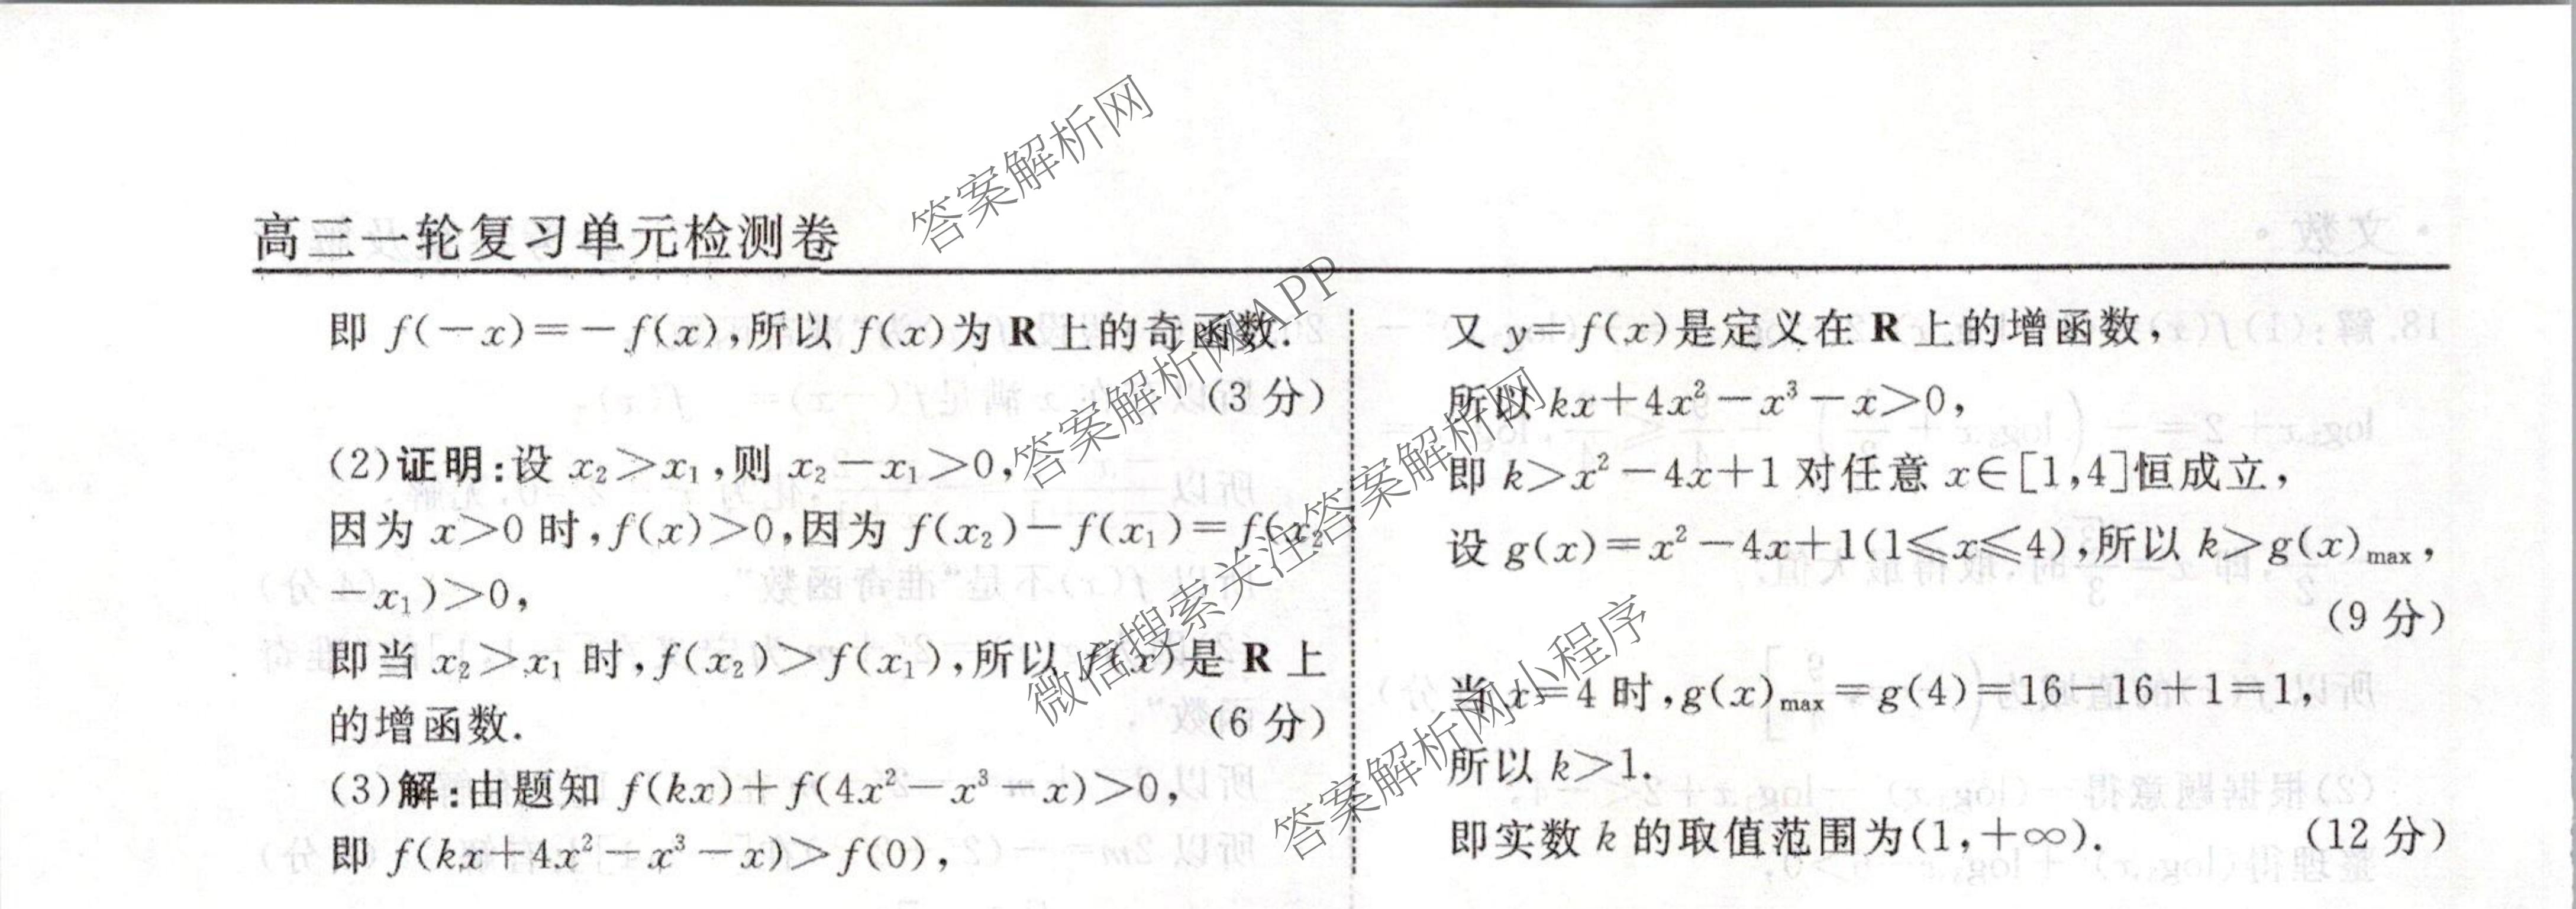 高三一轮复习单元检测卷
即 f(-x)=-f(x),所以 f(x)为 R 上的奇函数.
(3 分)
(2)证明:设 x₂>x₁,则 x₂-x₁>0,
因为 x>0 时,f(x)>0,因为 f(x₂)-f(x₁)=f(x₂
-x₁)>0,
即当 x₂>x₁ 时,f(x₂)>f(x₁),所以 f(x)是 R 上
的增函数.
(6 分)
(3)解:由题知 f(kx)+f(4x²-x³-x)>0,
即 f(kx+4x²-x³-x)>f(0),
又 y=f(x)是定义在 R 上的增函数,
所以 kx+4x²-x³-x>0,
即 k>x²-4x+1 对任意 x∈[1,4]恒成立,
设 g(x)=x²-4x+1(1≤x≤4),所以 k>g(x)max,
(9 分)
当 x=4 时,g(x)max=g(4)=16-16+1=1,
所以 k>1.
即实数 k 的取值范围为(1,+∞).
(12 分)
答案解析网
答案解析网APP
微信搜索关注答案解析网
答案解析网小程序